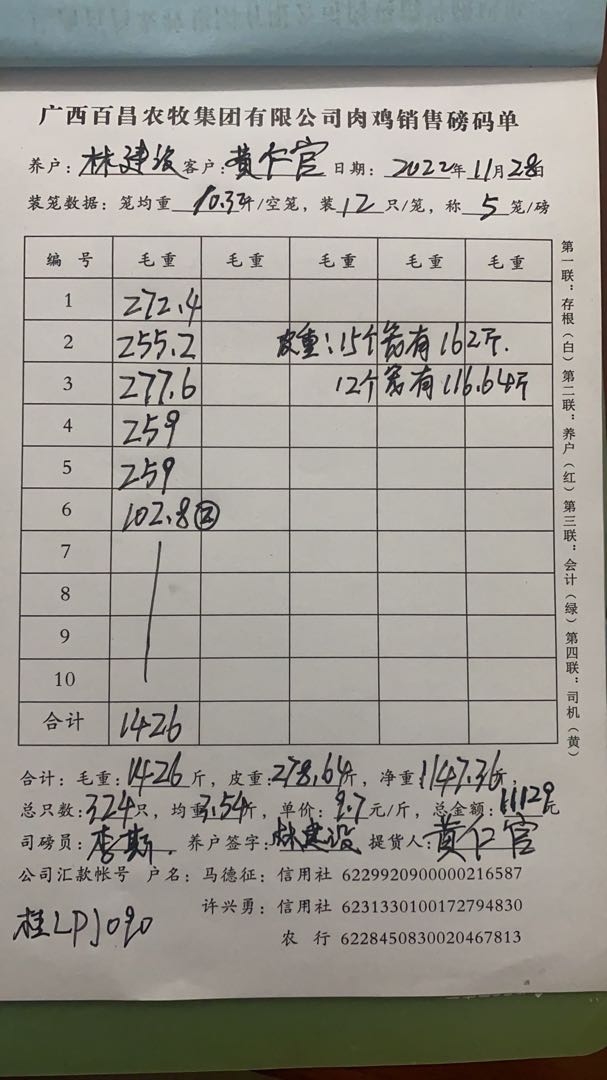 广西百昌农牧集团有限公司肉鸡销售磅码单
养户:林建设 客户:黄仁官 日期:2022年11月28日
装笼数据:笼均重10.3斤/空笼,装12只/笼,称5笼/磅
编号 毛重 毛重 毛重 毛重 毛重
1 272.4
2 255.2 皮重:15个笼有162斤.
3 277.6 12个笼有116.64斤
4 259
5 259
6 102.8②
7
8
9
10
合计 1426
合计:毛重:1426斤,皮重:278.64斤,净重:1147.36斤,
总只数:324只,均重3.54斤,单价:9.7元/斤,总金额:11129元
司磅员:李斯. 养户签字:林建设 提货人:黄仁官
公司汇款帐号 户名:马德征:信用社 6229920900000216587
许兴勇:信用社 6231330100172794830
农行 6228450830020467813
桂LPJ090
第一联:存根(白)第二联:养户(红)第三联:会计(绿)第四联:司机(黄)